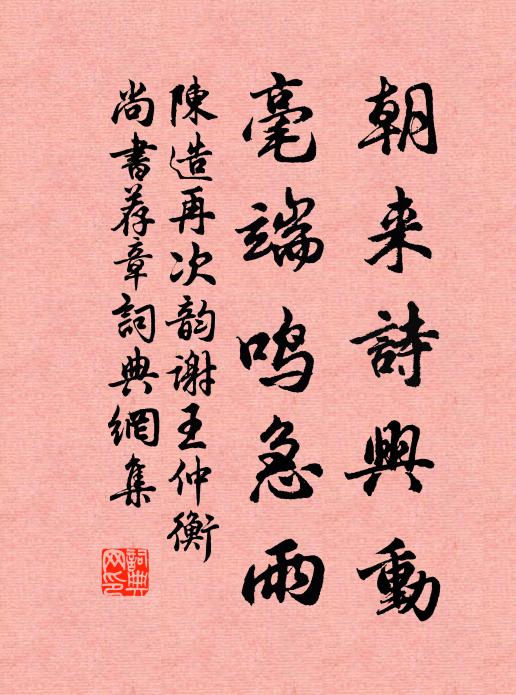 朝来詩興動
毫端鳴急雨
陳造再次韵謝王仲衡
尚書荐章詞典網集
詞典
网印